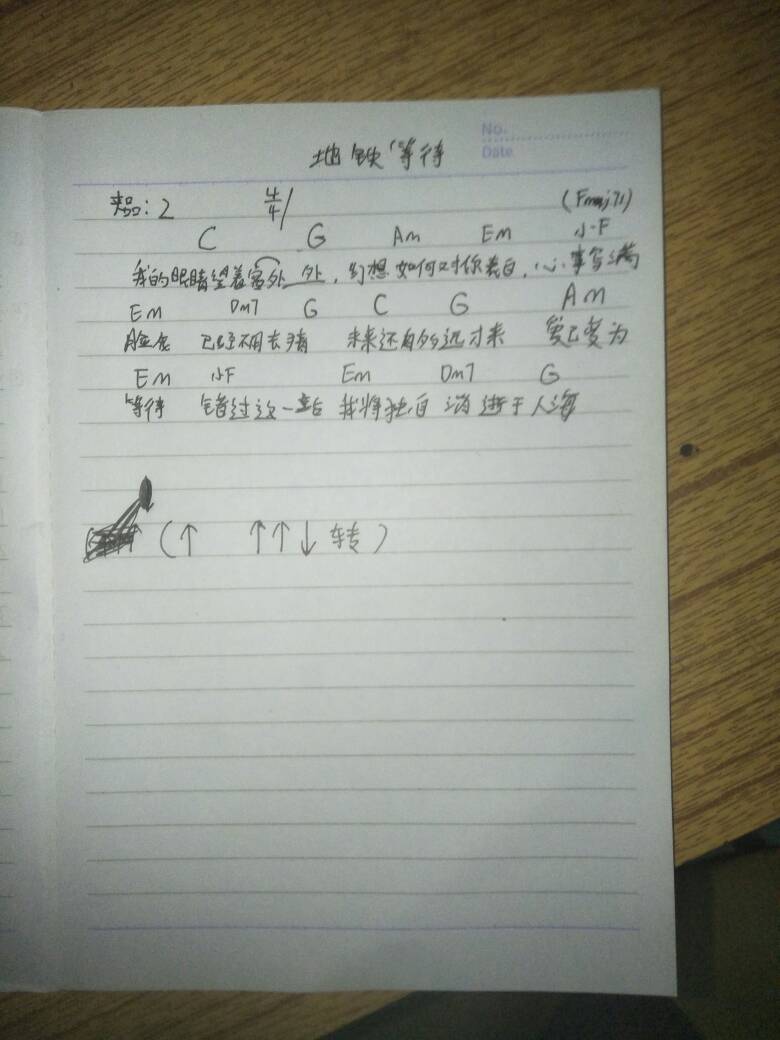 No.
Date
地铁等待
夹品：2 4/4 (Fmaj7)
C G Am Em 小F
我的眼睛望着窗外 外，幻想如何对你表白，心事写满
Em Dm7 G C G Am
脸庞 已经不用去猜 未来还有多远才来 爱已变为
Em 小F Em Dm7 G
等待 错过这一站 我将独自 消逝于人海
(↑ ↑↑↓转)